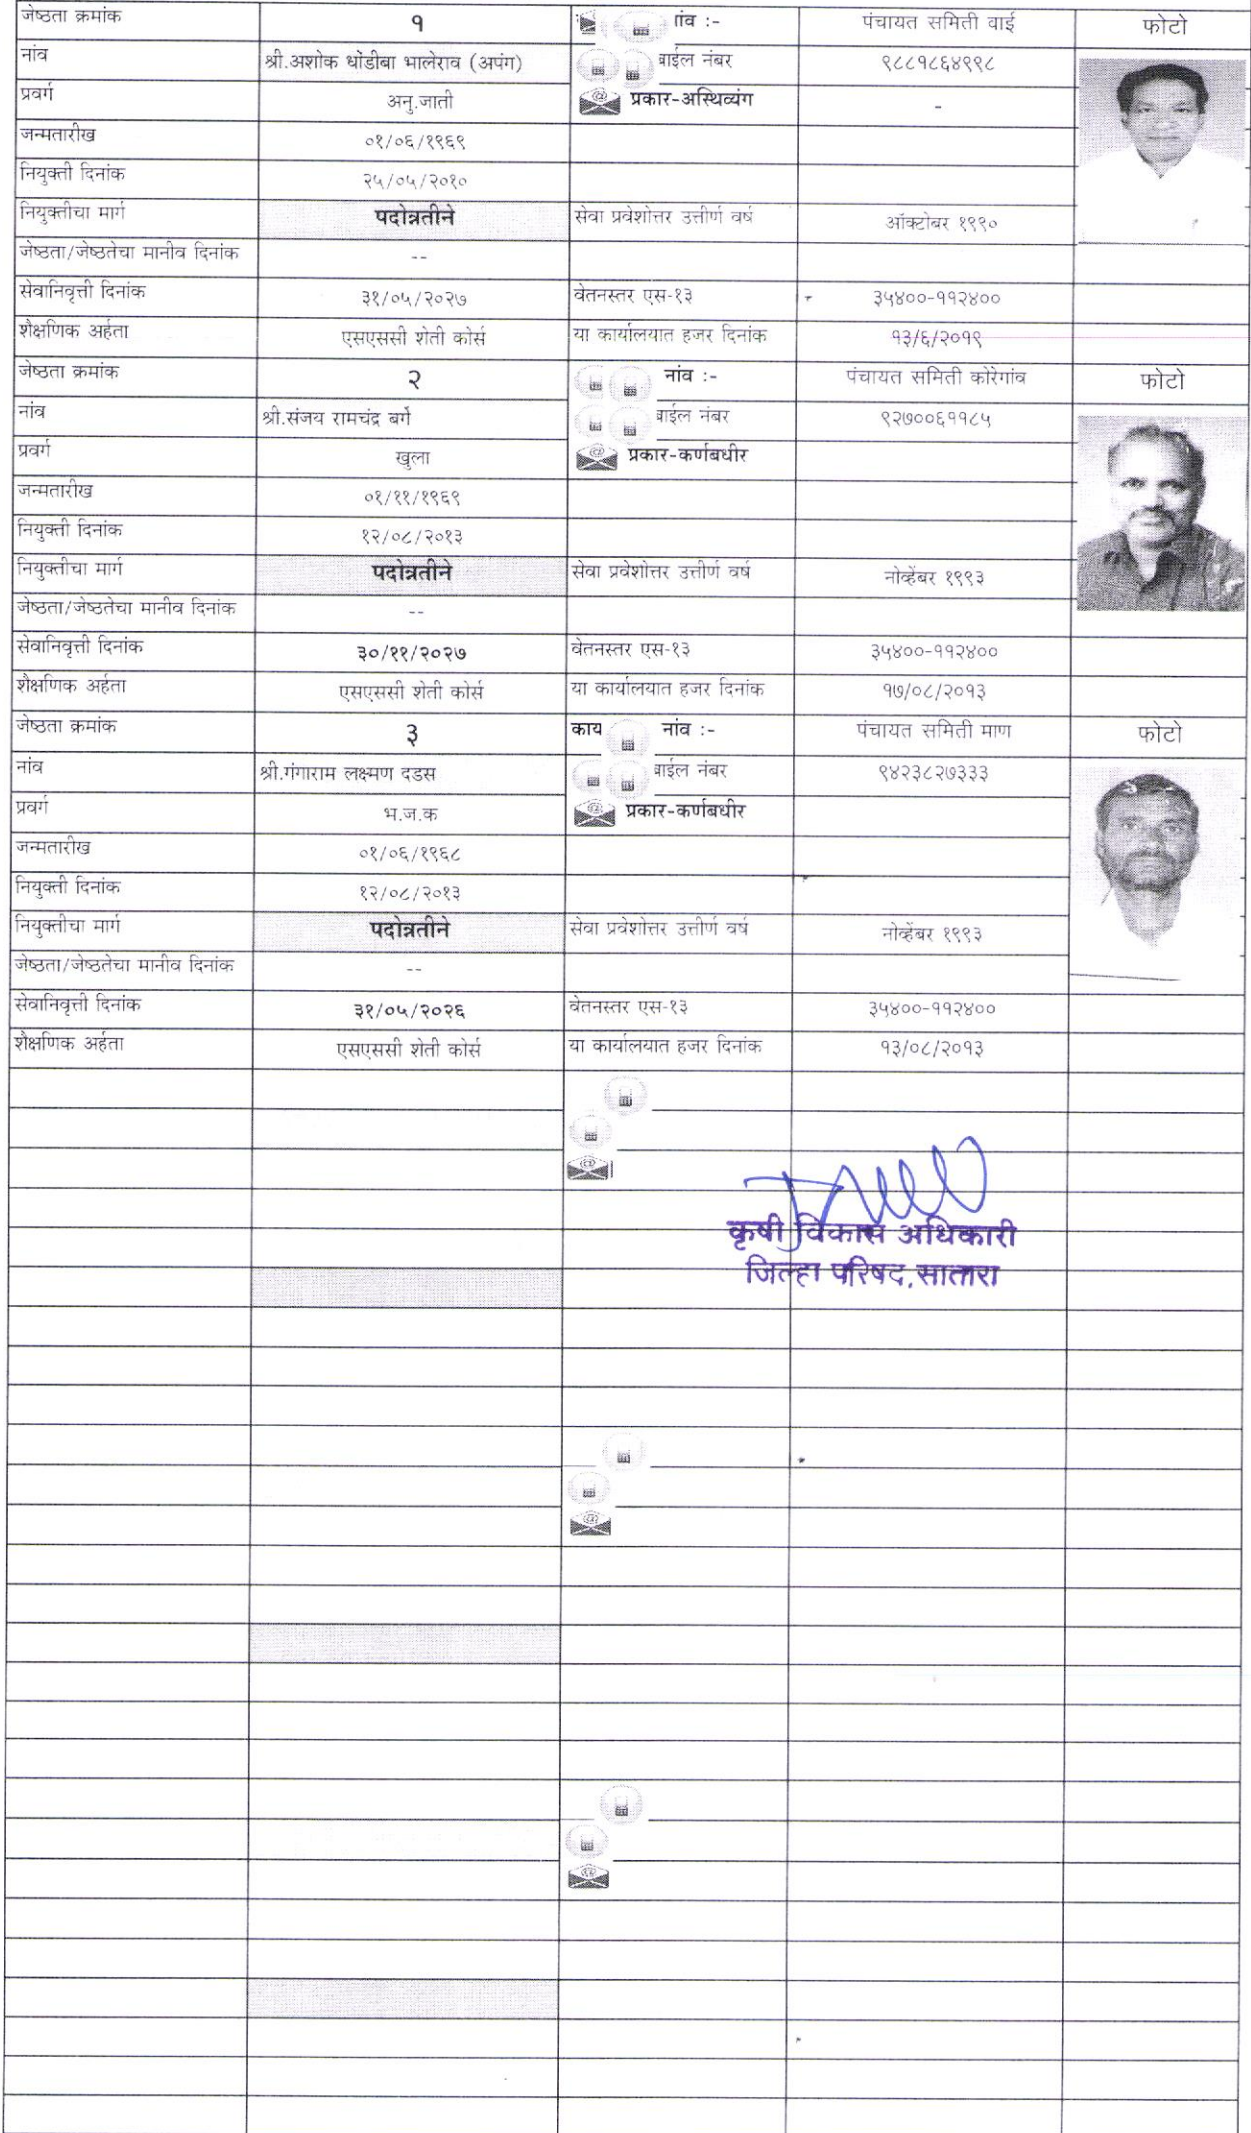 जेष्ठता क्रमांक १ गांव :- पंचायत समिती वाई फोटो
नांव श्री.अशोक धोंडीबा भालेराव (अपंग) बाईल नंबर ९८८१८६४९९८
प्रवर्ग अनु.जाती प्रकार-अस्थिव्यंग -
जन्मतारीख ०१/०६/१९६९
नियुक्ती दिनांक २५/०५/२०१०
नियुक्तीचा मार्ग पदोन्नतीने सेवा प्रवेशोत्तर उत्तीर्ण वर्ष ऑक्टोबर १९९०
जेष्ठता/जेष्ठतेचा मानीव दिनांक --
सेवानिवृत्ती दिनांक ३१/०५/२०२७ वेतनस्तर एस-१३ ३५४००-११२४००
शैक्षणिक अर्हता एसएससी शेती कोर्स या कार्यालयात हजर दिनांक १३/६/२०१९
जेष्ठता क्रमांक २ नांव :- पंचायत समिती कोरेगांव फोटो
नांव श्री.संजय रामचंद्र बर्गे बाईल नंबर ९२७००६११८५
प्रवर्ग खुला प्रकार-कर्णबधीर
जन्मतारीख ०१/११/१९६९
नियुक्ती दिनांक १२/०८/२०१३
नियुक्तीचा मार्ग पदोन्नतीने सेवा प्रवेशोत्तर उत्तीर्ण वर्ष नोव्हेंबर १९९३
जेष्ठता/जेष्ठतेचा मानीव दिनांक --
सेवानिवृत्ती दिनांक ३०/११/२०२७ वेतनस्तर एस-१३ ३५४००-११२४००
शैक्षणिक अर्हता एसएससी शेती कोर्स या कार्यालयात हजर दिनांक १७/०८/२०१३
जेष्ठता क्रमांक ३ काय नांव :- पंचायत समिती माण फोटो
नांव श्री.गंगाराम लक्ष्मण दडस बाईल नंबर ९४२३८२७३३३
प्रवर्ग भ.ज.क प्रकार-कर्णबधीर
जन्मतारीख ०१/०६/१९६८
नियुक्ती दिनांक १२/०८/२०१३
नियुक्तीचा मार्ग पदोन्नतीने सेवा प्रवेशोत्तर उत्तीर्ण वर्ष नोव्हेंबर १९९३
जेष्ठता/जेष्ठतेचा मानीव दिनांक --
सेवानिवृत्ती दिनांक ३१/०५/२०२६ वेतनस्तर एस-१३ ३५४००-११२४००
शैक्षणिक अर्हता एसएससी शेती कोर्स या कार्यालयात हजर दिनांक १३/०८/२०१३
कृषी विकास अधिकारी
जिल्हा परिषद,सातारा